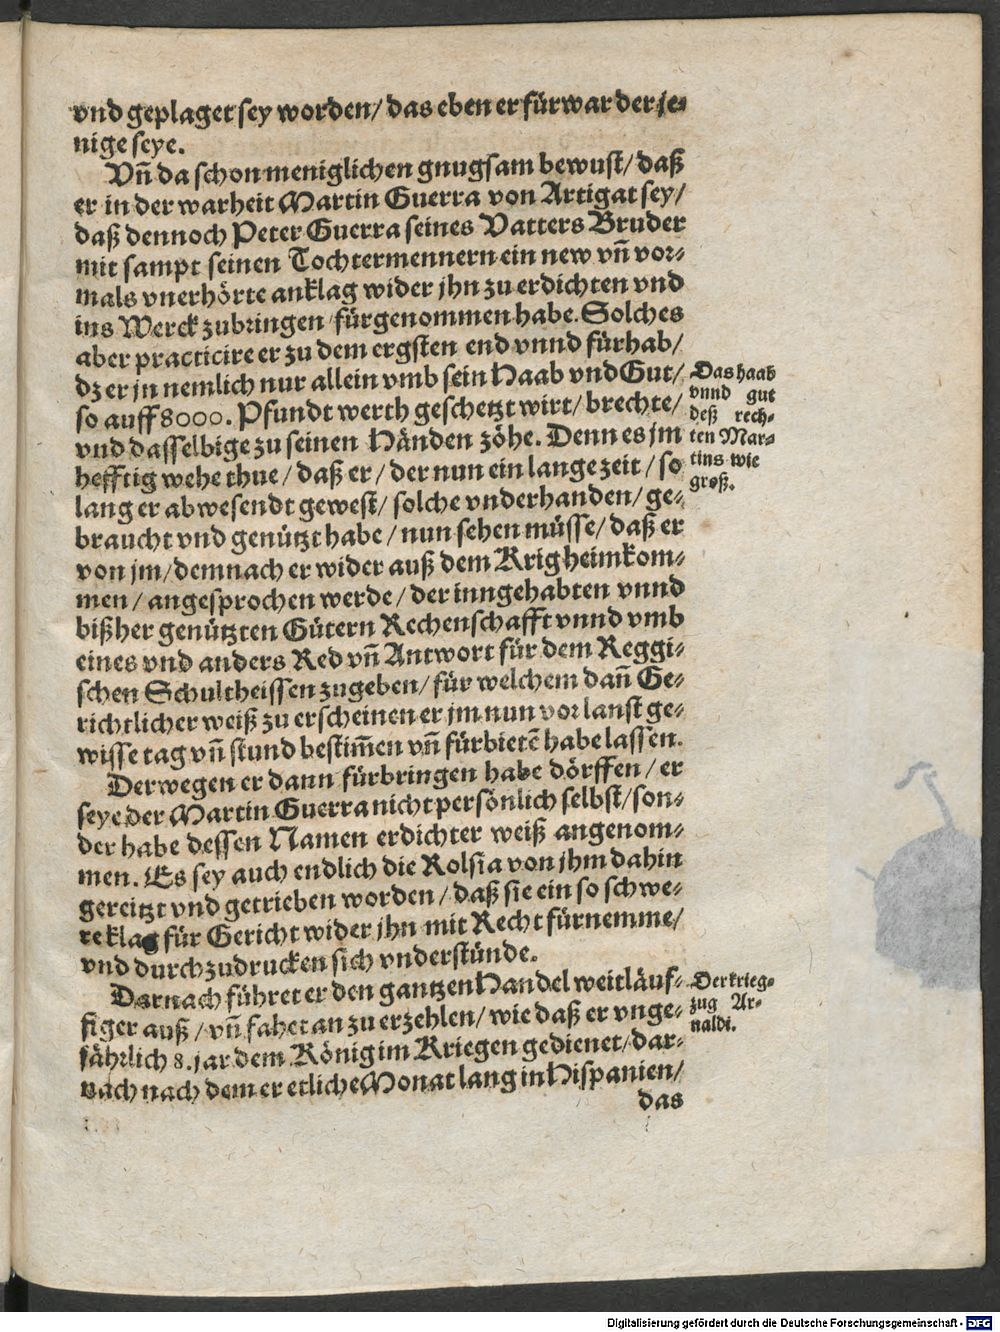 vnd geplaget sey worden/ das eben er fürwar derje-
nige seye.
Vñ da schon meniglichen gnugsam bewust/ daß
er in der warheit Martin Guerra von Artigat sey/
daß dennoch Peter Guerra seines Vatters Bruder
mit sampt seinen Tochtermennern ein new vñ vor-
mals vnerhörte anklag wider jhn zu erdichten vnd
ins Werck zubringen fürgenommen habe. Solches
aber practicire er zu dem ergsten end vnnd fürhab/
dz er jn nemlich nur allein vmb sein Haab vnd Gut/
so auff 8000. Pfundt werth geschetzt wirt/ brechte/
vnd dasselbige zu seinen Händen zöhe. Denn es jm
hefftig wehe thue/ daß er/ der nun ein lange zeit/ so
lang er abwesendt gewest/ solche vnderhanden/ ge-
braucht vnd genützt habe/ nun sehen müsse/ daß er
von jm/ demnach er wider auß dem Krig heimkom-
men/ angesprochen werde/ der inngehabten vnnd
bißher genützten Gütern Rechenschafft vnnd vmb
eines vnd anders Red vñ Antwort für dem Reggi-
schen Schultheissen zugeben/ für welchem dañ Ge-
richtlicher weiß zu erscheinen er jm nun vor lanst ge-
wisse tag vñ stund bestim̃en vñ fürbietẽ habe lassen.
Derwegen er dann fürbringen habe dörffen/ er
seye der Martin Guerra nicht persönlich selbst/ son-
der habe dessen Namen erdichter weiß angenom-
men. Es sey auch endlich die Rolsia von jhm dahin
gereitzt vnd getrieben worden/ daß sie ein so schwe-
re klag für Gericht wider jhn mit Recht fürnemme/
vnd durchzudrucken sich vnderstünde.
Darnach führet er den gantzen Handel weitläuf-
figer auß/ vñ fahet an zu erzehlen/ wie daß er vnge-
fährlich 8. jar dem König im Kriegen gedienet/ dar-
nach nach dem er etliche Monat lang in Hispanien/
das
Das haab
vnnd gut
deß rech-
ten Mar-
tins wie
groß.
Der krieg-
zug Ar-
naldi.
Digitalisierung gefördert durch die Deutsche Forschungsgemeinschaft - DFG